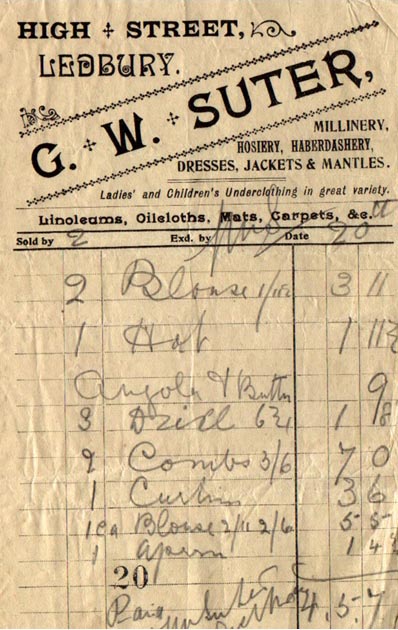 HIGH STREET,
LEDBURY.
G. W. SUTER,
MILLINERY,
HOSIERY, HABERDASHERY,
DRESSES, JACKETS & MANTLES.
Ladies' and Children's Underclothing in great variety.
Linoleums, Oilcloths, Mats, Carpets, &c.
Sold by 2 Exd. by Date 20
2 Blouse 3 11
1 Hat 1 11½
Angola & 9
3 1
Combs 3/6 7 0
1 3 6
1 ea Blouse 2/11 2/6 5 5
1 Apron 1 4
20
Paid 4. 5. 7